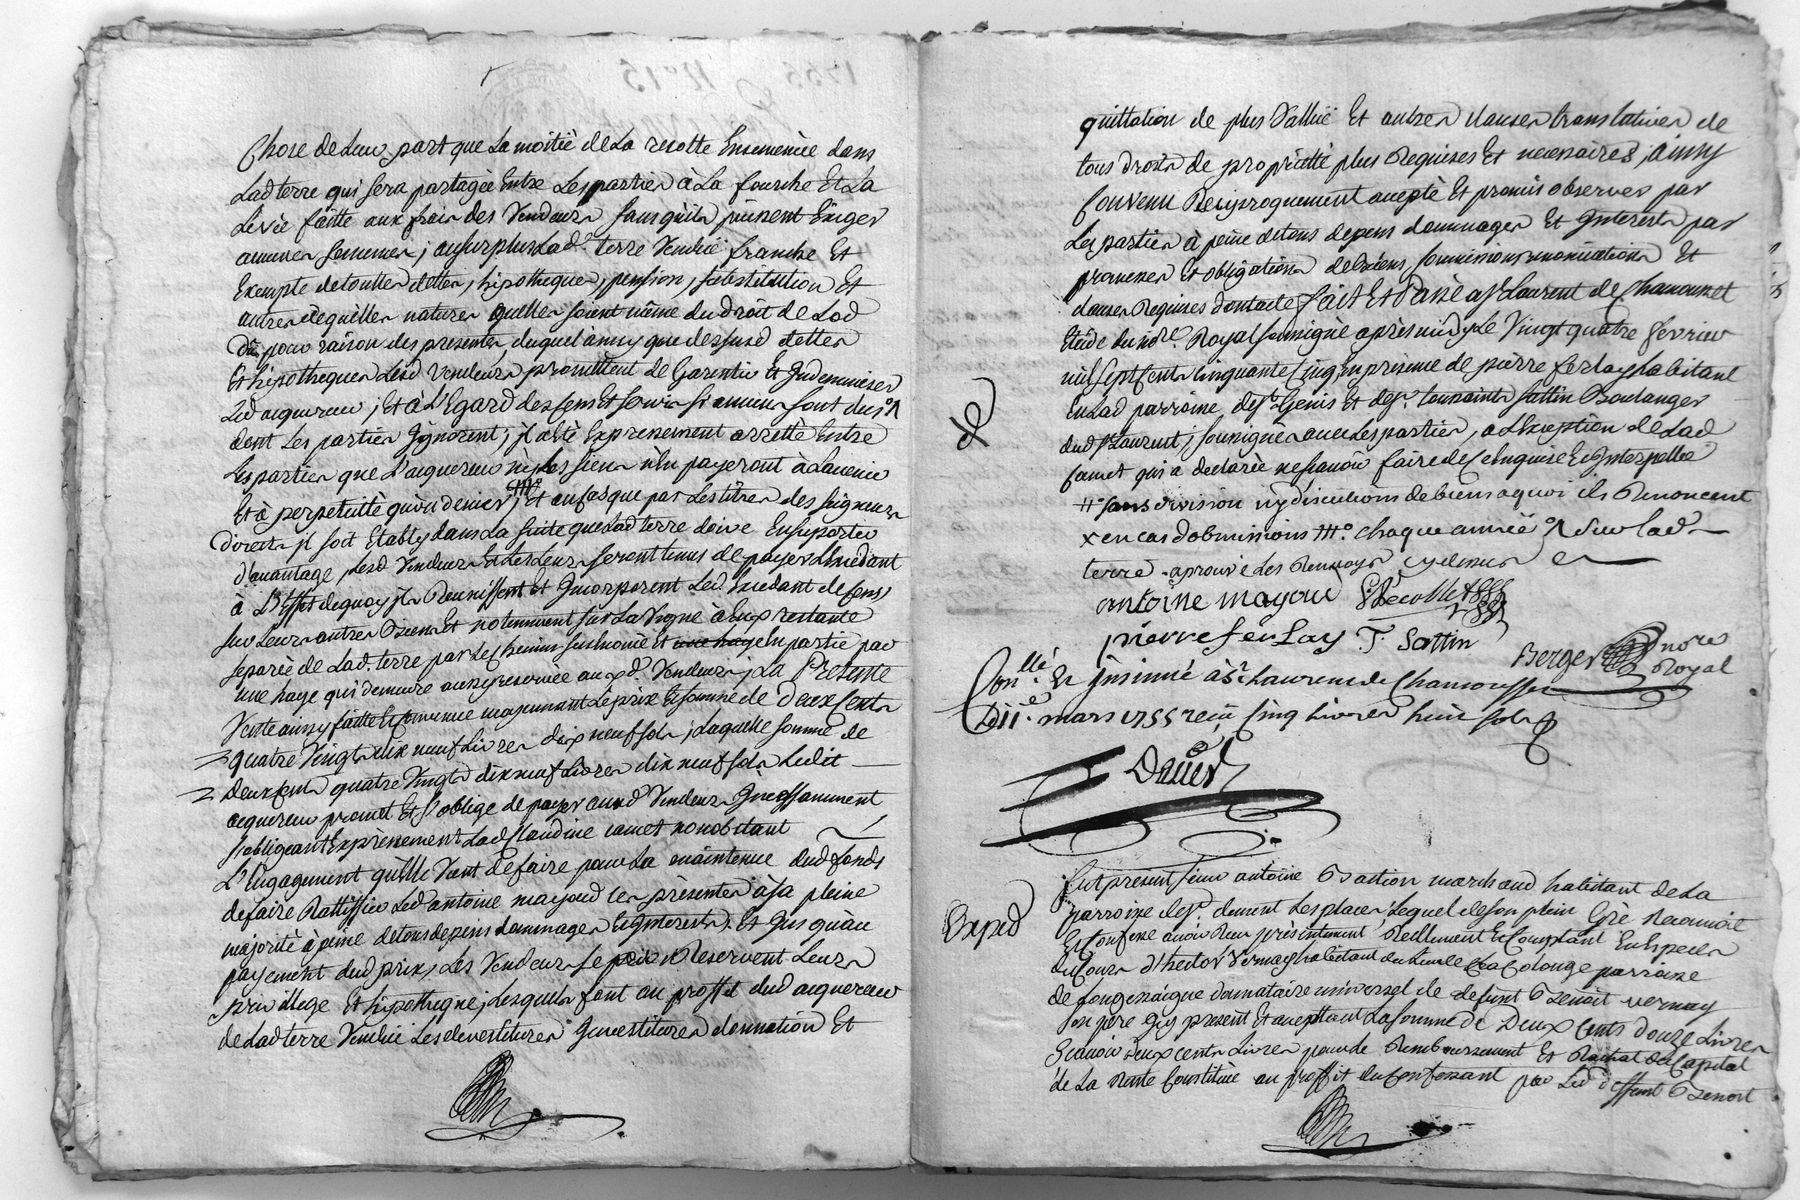 Chose de Leur part que La moitié de La recolte Ensemencée dans
Lad terre qui sera partagée Entre Les parties à La fourche Et La
Levée faitte aux frais des Vendeurs sans qu'ils puissent Exiger
aucunes semences; au surplus Lad.e terre Vendue franche Et
Exempte de touttes dettes, hipotheques, pension, substitution Et
autres de quelles natures quelles soient même du Droit de Lod
Dû pour raison des presentes, duquel ainsy que desusd dettes
Et hipotheques Lesd Vendeurs promettent de Garentir Et Indemniser
Led acquereur; Et à L'Egard des sens Et servis si aucuns sont dus
dont Les parties Ignorent; il a été Expressement arretté Entre
Les parties que L'acquereur ny Les siens n'En payeront à Lavenir
Et à perpetuitté qu'un denier; Et au cas que par Les titres des seigneurs
directs il soit Etably dans La suite que Lad terre doive En suporter
d'avantage, Lesd Vendeurs Et Les Leurs seront tenus de payer L'Excedant
à L'Effet de quoy ils Reunissent Et Incorporent Led. Excedant de sens
sur Leurs autres Biens Et notemment sur La Vigne à Eux restante
separée de Lad. terre par Le chemin susnomé Et en partie par
une haye qui demeure aussy reservée auxd. Vendeurs; La Presente
Vente ainsy faitte Et convenue moyennant Le prix Et somme de Deux Cents
quatre Vingts dix neuf Livres dix neuf sols; Laquelle somme de
Deux Cents quatre Vingts dix neuf Livres dix neuf sols Ledit
acquereur promet Et s'oblige de payer auxd Vendeurs Incessamment
s'obligeant Expressement Lad Claudine camet nonobstant
L'Engagement qu'Elle Vient de faire pour La maintenue dud fonds
de faire Rattiffier Led antoine mayoud Les presentes à sa pleine
majorité à peine de tous depens dommages Et Interests; Et Jusqu'au
payement dud prix, Les Vendeurs se Reservent Leurs
privillege Et hipotheque; Lesquels font au proffit dud acquereur
de Lad terre Vendue Les devestitures Investitures donnation Et
quittation de plus Vallüe Et autres clauses translatives de
tous droits de proprietté plus Requises Et necessaires, ainsy
Convenu Reciproquement accepté Et promis observer par
Les parties à peine de tous depens dommages Et Interests par
promesses Et obligations de biens, soumissions renonciations Et
clauses Requises dont acte fait Et Passé a St Laurent de Chamousset
Etude du no.re Royal soussigné apres midy Le Vingt quatre fevrier
mil sept Cents Cinquante Cinq, En presence de pierre ferlay habitant
En Lad parroisse de St Genis Et de Sr. toussaints sattin Boulanger
dud St Laurent; soussignés avec Les parties, a L'Exeption de Lad
Camet qui a declarée ne sçavoir faire de Ce Enquise Et Interpellée
sans division ny discutions de biens a quoi ils Renoncent
x en cas d'obmissions chaque année sur lad.
terre. aprouvé Les Renvoys cy dessus
antoine mayoud
pierre ferlay J Sattin
Berger no.re
Royal
Con.llé Et Insinué à St. Laurent de Chamousset
Le 11.e mars 1755 reçu Cinq Livres huit sols
Exped
fut present sieur antoine Bastion marchand habitant de La
parroisse de St. clement Les places Lequel de son plein Gré Reconnoit
Et Confesse avoir Reçu presentement Reellement Et Comptant En Especes
du Cours d'hector Vernay habitant au Lieu de parroisse
de Longessaigne donnataire universel de defunt Benoit Vernay
son pere icy present Et acceptant La somme de Deux Cents douze Livres
Sçavoir deux cents Livres pour le Remboursement Et Rachat du Capital
de La Rente Constituée au proffit du Confessant par Led deffunt Benoit